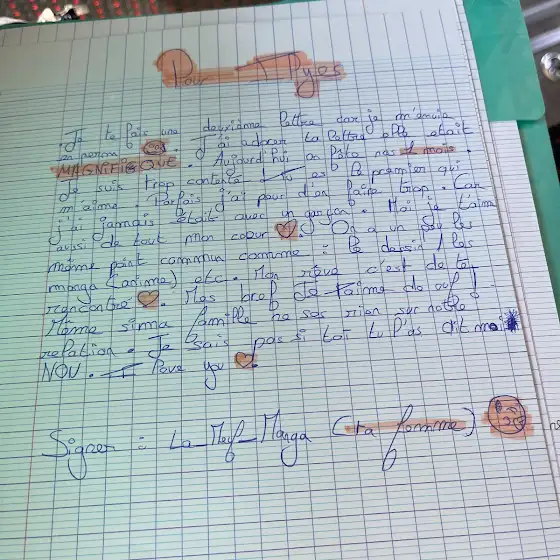 Pour Ilyes
Je te fais une deuxième lettre car je m'ennuie
en perm. J'ai adorer ta lettre elle était
MAGNIFIQUE. Aujourd'hui on fête nos 1 mois.
Je suis trop contente. Tu es le premier qui
m'aime. Parfois j'ai peur d'en faire trop. Car
j'ai jamais était avec un garçon. Moi je t'aime
aussi de tout mon cœur. On a un peu les
même point commun comme : le dessin / les
manga (anime) etc. Mon rêve c'est de te
rencontre. Mes bref Je t'aime de ouf !
Même si ma famille ne ses rien sur notre
relation. Je sais pas si toi tu l'as dit moi
NON. I love you
Signer : La_Meuf_Manga (ta femme)